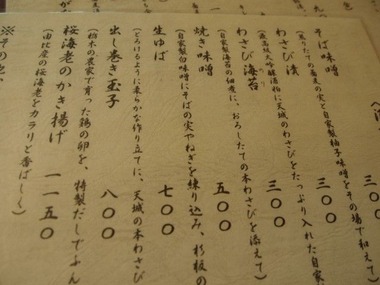 そば味噌　三〇〇
（煎りたての蕎麦の実と自家製柚子味噌をその場で和えて）
わさび漬　三〇〇
（最高級大吟醸酒粕に天城のわさびをたっぷり入れた自家
わさび海苔　五〇〇
（自家製海苔の佃煮に、おろしたての本わさびを添えて）
焼き味噌　五〇〇
（自家製白味噌にそばの実やねぎを練り込み、杉板の
生ゆば　七〇〇
（とろけるように柔らかな作り立てに、天城の本わさび
出し巻き玉子　八〇〇
（栃木の農家で育った鶏の卵を、特製だしでふん
桜海老のかき揚げ　一一五〇
（由比産の桜海老をカラリと香ばしく）
※その他